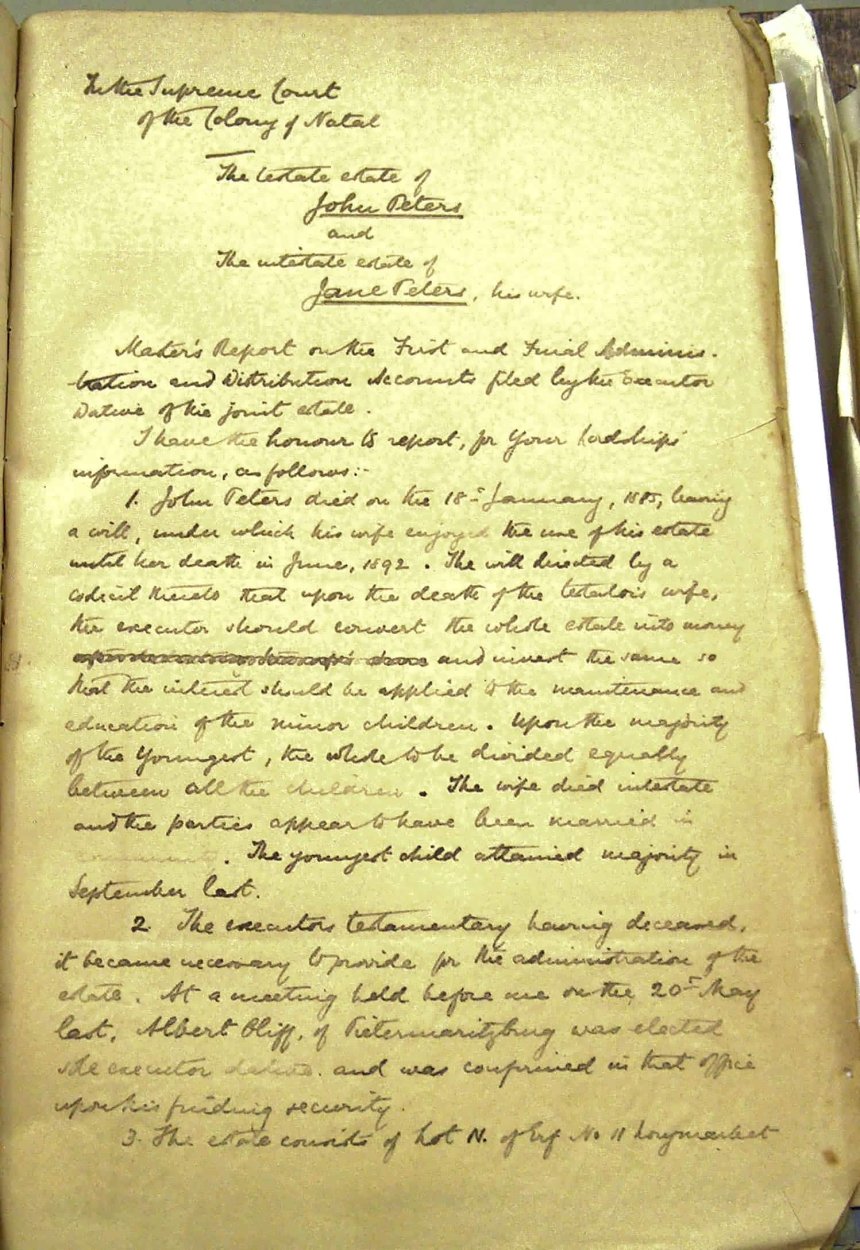 In the Supreme Court
of the Colony of Natal
The testate estate of
John Peters
and
The intestate estate of
Jane Peters, his wife.
Master's Report on the First and Final Adminis-
tration and Distribution Accounts filed by the Executor
Dative of the joint estate.
I have the honour to report, for Your Lordships'
information, as follows:-
1. John Peters died on the 18th January, 1885, leaving
a will, under which his wife enjoyed the use of his estate
until her death in June, 1892. The will directed by a
codicil thereto that upon the death of the testator's wife,
the executor should convert the whole estate into money
and invest the same so
that the interest should be applied to the maintenance and
education of the minor children. Upon the majority
of the youngest, the whole to be divided equally
between all the children. The wife died intestate
and the parties appear to have been married in
community. The youngest child attained majority in
September last.
2. The executors testamentary having deceased,
it became necessary to provide for the administration of the
estate. At a meeting held before me on the 20th May
last, Albert Oliff, of Pietermaritzburg was elected
sole executor dative and was confirmed in that office
upon his finding security.
3. The estate consists of Lot N. of Erf No 11 Longmarket